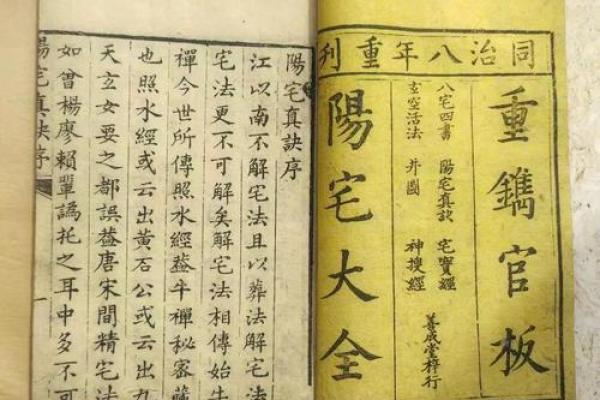 同治八年重利
重鐫官板
八宅四書 陽宅真訣 宅寶經
玄空活法 井圖 神搜經
善成堂梓行
陽宅大全
陽宅真訣序
江以南不解宅法且以葬法解宅法
宅法更不可解矣解宅法相傳始牛
禪今世所傳照水經葢牛禪秘密藏
也照水經或云出黃石公或云出九
天玄女要之都誤葢唐宋間精宅法
如曾楊廖賴輩譌托之耳中多不可
陽宅真訣序
一